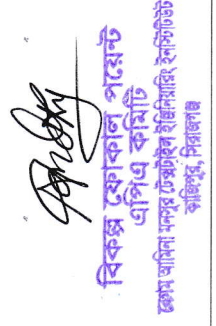 বিকল্প ফোকাল পয়েন্ট
এপিএ কমিটি
বেগম আমিনা মনসুর টেক্সটাইল ইঞ্জিনিয়ারিং ইনস্টিটিউট
কাজিপুর, সিরাজগঞ্জ